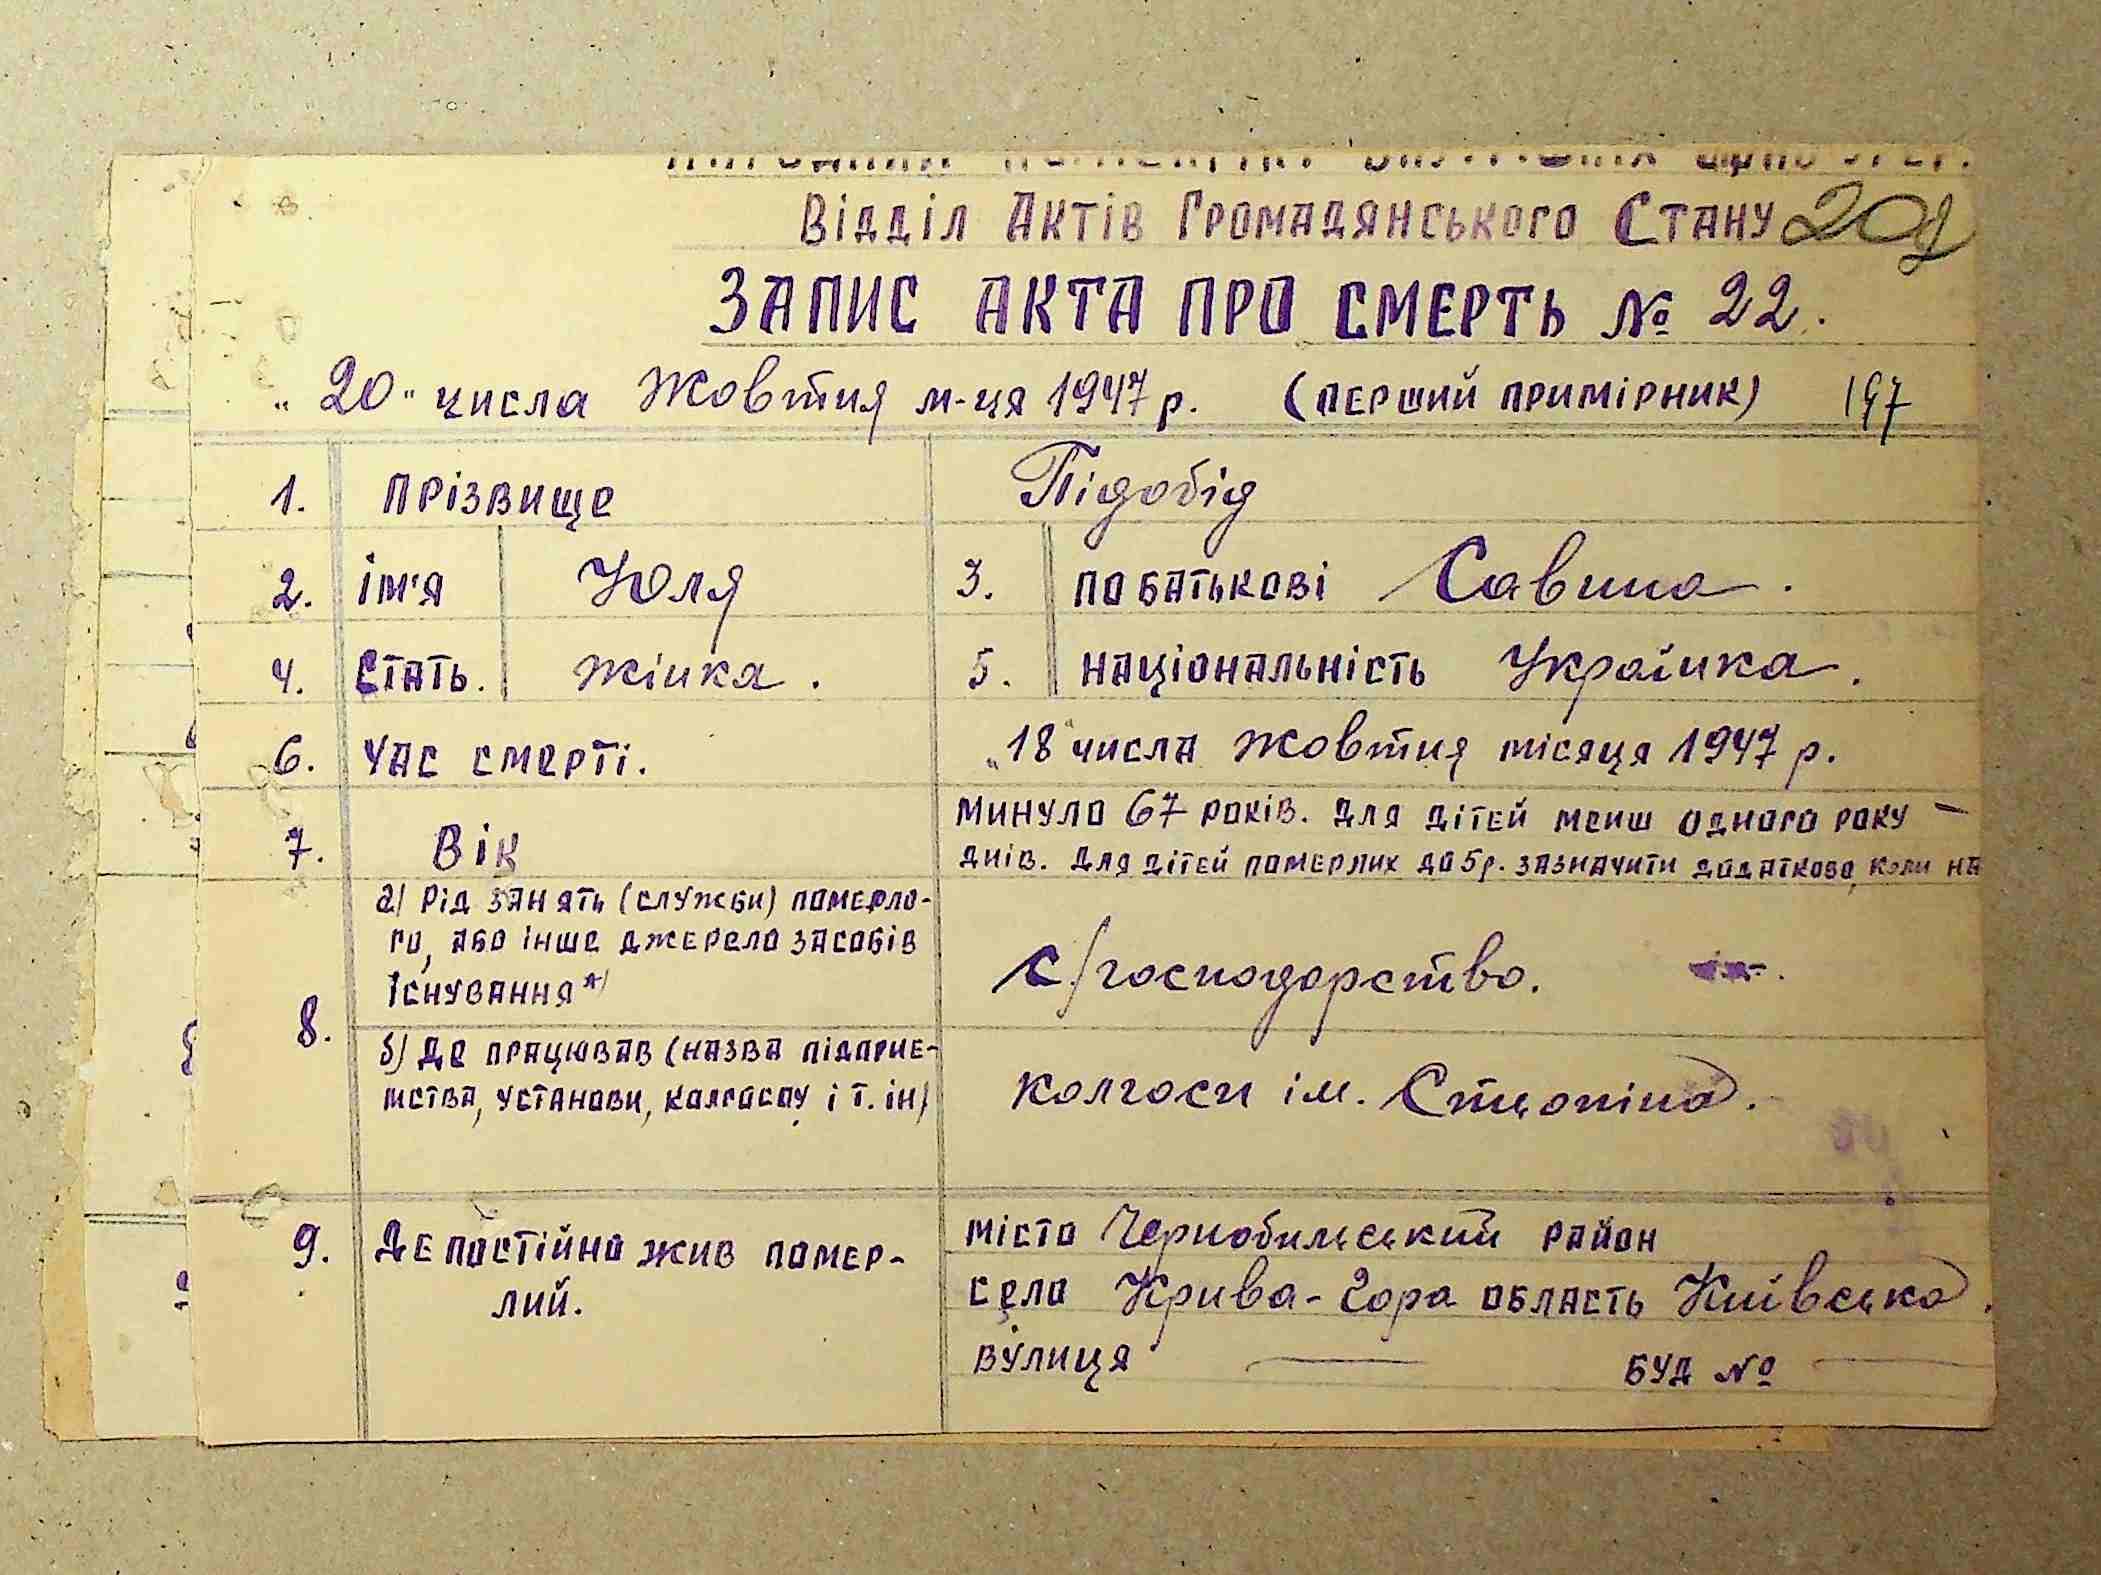 Відділ Актів Громадянського Стану 209
ЗАПИС АКТА ПРО СМЕРТЬ № 22.
„20" числа Жовтня м-ця 1947 р. (перший примірник) 197
1. Прізвище Підобід
2. ім'я Юля 3. по батькові Савина.
4. Стать. жінка. 5. національність Українка.
6. Час смерті. „18" числа жовтня місяця 1947 р.
7. Вік минуло 67 років. Для дітей менш одного року —
днів. Для дітей померлих до 5 р. зазначити додатково, коли на
8. а) Рід занять (служби) померло-
го, або інше джерело засобів
існування*) с/господарство.
б) Де працював (назва підприє-
мства, установи, колгоспу і т. ін) колгосп ім.
9. Де постійно жив помер-
лий.
місто Чернобильський район
село Крива-Гора область Київська.
вулиця — буд № —